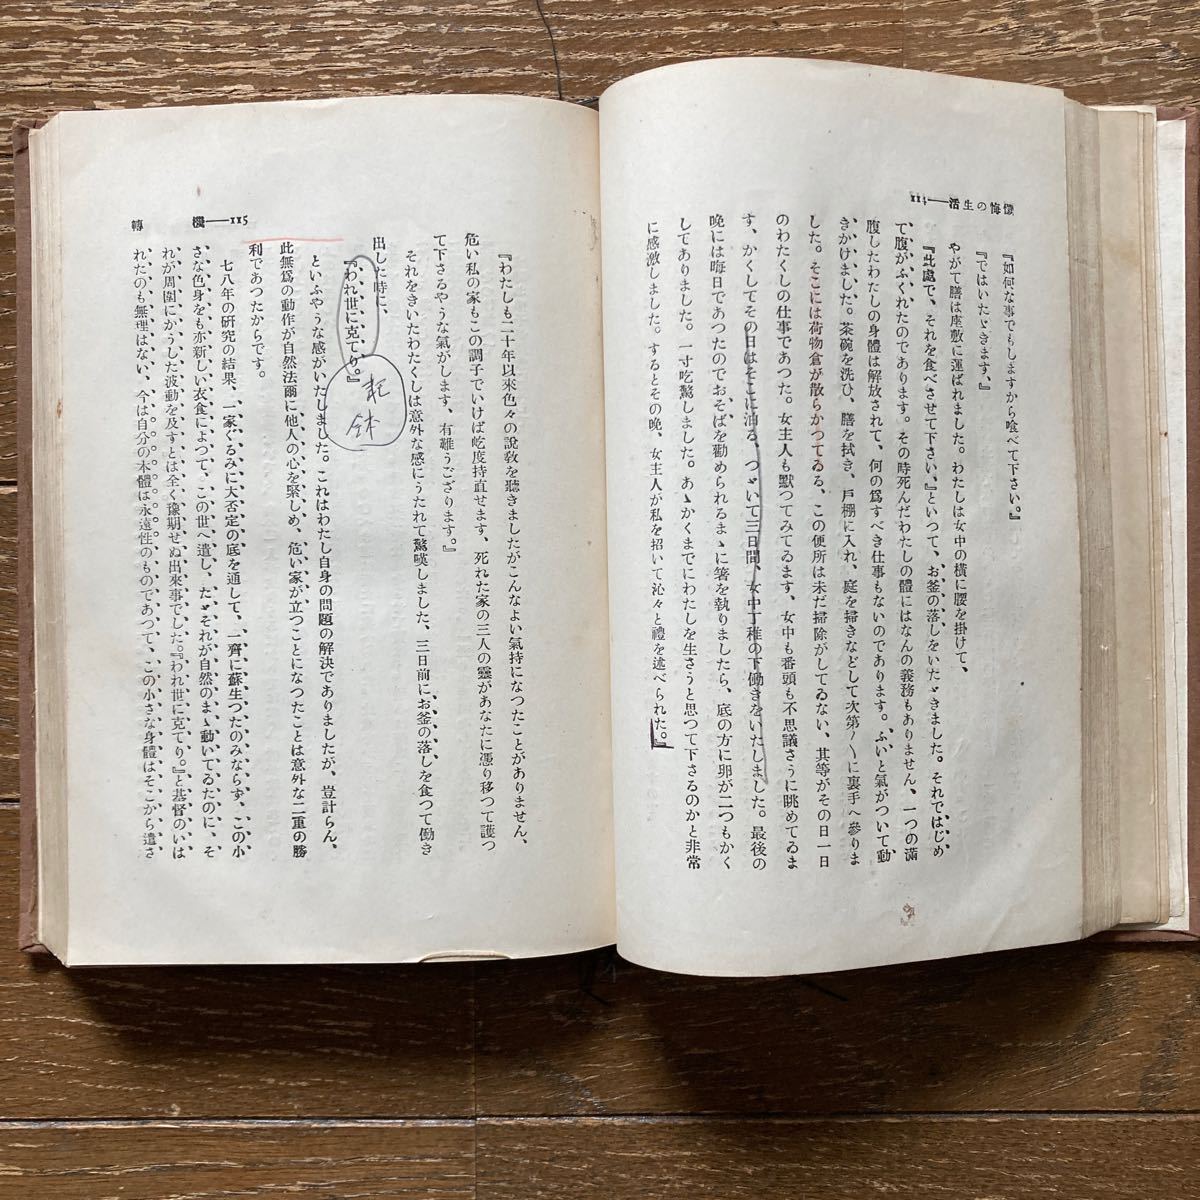 懺悔の生活――114
『如何な事でもしますから喰べて下さい。』
『ではいたゞきます。』
やがて膳は座敷に運ばれました。わたしは女中の横に腰を掛けて、
『此處で、それを食べさせて下さい、』といつて、お釜の落しをいたゞきました。それではじめ
て腹がふくれたのであります。その時死んだわたしの體にはなんの義務もありません、一つの滿
腹したわたしの身體は解放されて、何の爲すべき仕事もないのであります。ふいと氣がついて動
きかけました。茶碗を洗ひ、膳を拭き、戸棚に入れ、庭を掃きなどして次第〱に裏手へ參りま
した。そこには荷物倉が散らかつてゐる、この便所は未だ掃除がしてゐない、其等がその日一日
のわたくしの仕事であつた。女主人も默つてみてゐます、女中も番頭も不思議さうに眺めてゐま
す、かくしてその日はそこに泊る、つゞいて三日間、女中丁稚の下働きをいたしました。最後の
晩には晦日であつたのでおそばを勸められるまゝに箸を執りましたら、底の方に卵が二つもかく
してありました。一寸吃驚しました。あゝかくまでにわたしを生さうと思つて下さるのかと非常
に感激しました。するとその晩、女主人が私を招いて沁々と禮を述べられた。』
轉　機――115
『わたしも二十年以來色々の說敎を聽きましたがこんなよい氣持になつたことがありません、
危い私の家もこの調子でいけば屹度持直せます、死れた家の三人の靈があなたに憑り移つて護つ
て下さるやうな氣がします、有難うござります。』
それをきいたわたくしは意外な感にうたれて驚嘆しました、三日前にお釜の落しを食つて働き
出した時に、
『われ世に克てり。』
托
鉢
といふやうな感がいたしました。これはわたし自身の問題の解決でありましたが、豈計らん、
此無爲の動作が自然法爾に他人の心を緊しめ、危い家が立つことになつたことは意外な二重の勝
利であつたからです。
七八年の研究の結果、一家ぐるみに大否定の底を通して、一齊に蘇生つたのみならず、この小
さな色身をも亦新しい衣食によつて、この世へ遣し、たゞそれが自然のまゝ動いてゐたのに、そ
れが周圍にかうした波動を及すとは全く豫期せぬ出來事でした。『われ世に克てり。』と基督のいは
れたのも無理はない、今は自分の本體は永遠性のものであつて、この小さな身體はそこから遣さ